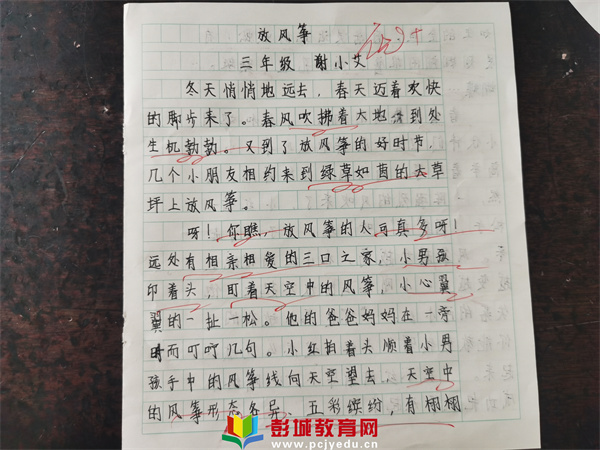 放风筝
三年级 谢小艾
100+
冬天悄悄地远去，春天迈着欢快
的脚步来了。春风吹拂着大地，到处
生机勃勃。又到了放风筝的好时节，
几个小朋友相约来到绿草如茵的大草
坪上放风筝。
呀！你瞧，放风筝的人可真多呀！
远处有相亲相爱的三口之家，小男孩
仰着头，盯着天空中的风筝，小心翼
翼的一扯一松。他的爸爸妈妈在一旁
时而叮咛几句。小红抬着头顺着小男
孩手中的风筝线向天空望去，天空中
的风筝形态各异、五彩缤纷，有栩栩
彭城教育网
www.pcjyedu.cn